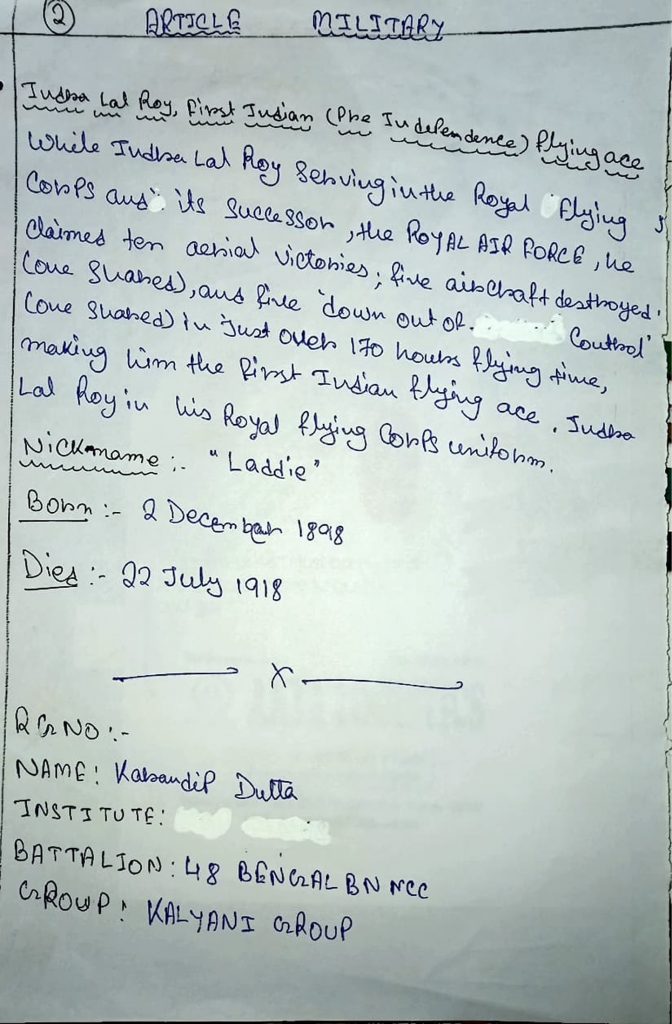 2 ARTICLE MILITARY
Indra Lal Roy, First Indian (Pre Independence) flying ace
While Indra Lal Roy serving in the Royal Flying
Corps and its successor, the ROYAL AIR FORCE, he
claimed ten aerial victories; five aircraft destroyed'
(one shared), and five 'down out of. Control'
(one shared) in just over 170 hours flying time,
making him the first Indian flying ace. Indra
Lal Roy in his Royal flying Corps uniform.
Nickname :- "Laddie"
Born :- 2 December 1898
Died :- 22 July 1918
X
RG NO :-
NAME: Karandip Dutta
INSTITUTE:
BATTALION: 48 BENGAL BN NCC
GROUP: KALYANI GROUP